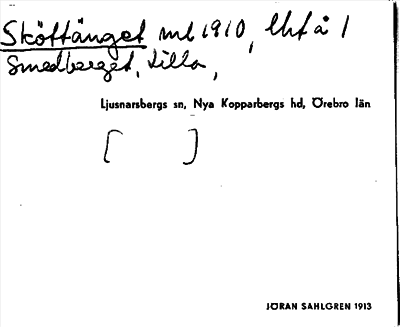 Sköttänget ml 1910, Utf å 1
Smedberget, Lilla,
Ljusnarsbergs sn, Nya Kopparbergs hd, Örebro län
[ ]
JÖRAN SAHLGREN 1913